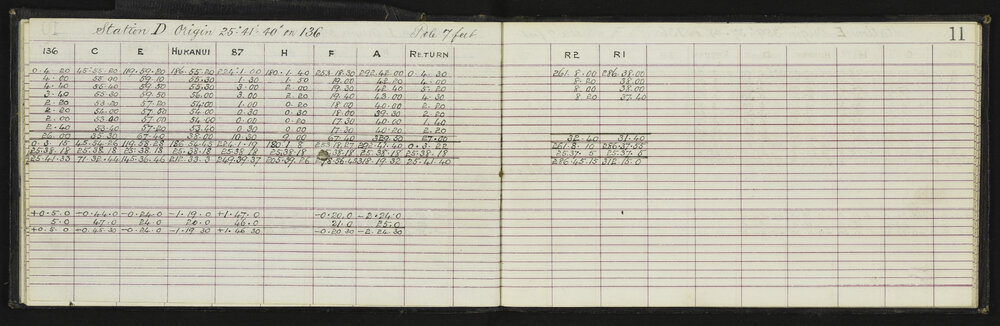 Station D Origin 25° 41' 40" on 136 Pole 7 feet 11
136 C E HUKANUI 87 H F A RETURN R2 R1
0. 4. 20 45. 55. 20 119. 59. 20 186. 55. 20 224. 1. 00 180. 1. 40 253. 18. 30 292. 42. 00 0. 4. 30 261. 8. 00 286. 38. 00
4. 00 55. 00 59. 10 55. 30 1. 30 1. 50 19. 00 42. 20 4. 00 8. 20 38. 00
4. 40 59. 50 55. 30 3. 00 2. 00 19. 30 42. 40 5. 20 8. 00 38. 00
3. 40 55. 20 59. 50 56. 00 3. 00 2. 20 19. 40 43. 00 4. 30 8. 20 37. 40
2. 20 53. 20 57. 20 54. 00 1. 00 0. 20 18. 00 40. 00 2. 20
2. 20 54. 00 57. 00 54. 00 0. 30 0. 20 18. 00 39. 30 2. 20
2. 00 53. 40 57. 00 54. 00 0. 00 0. 20 17. 30 40. 00 1. 40
2. 40 53. 40 57. 20 53. 40 0. 30 0. 00 17. 30 40. 20 2. 20
26. 00 35. 30 67. 40 38. 00 10. 30 9. 00 67. 40 27. 00 32. 40 31. 40
0. 3. 15 45. 54. 26 119. 58. 28 186. 54. 45 224. 1. 19 180. 1. 8 253. 18. 27 292. 41. 40 0. 3. 22 261. 8. 10 286. 37. 55
25. 38. 18 25. 38. 18 25. 38. 18 25. 38. 18 25. 38. 18 25. 38. 18 38. 18 25. 38. 18 25. 38. 18 25. 37. 5 25. 37. 5
25. 41. 33 71. 32. 44 145. 36. 46 212. 33. 3 249. 39. 37 205. 39. 26 318. 19. 32 25. 41. 40 286. 45. 15 312. 15. 0
+0. 5. 0 -0. 44. 0 -0. 24. 0 -1. 19. 0 +1. 47. 0 -0. 20. 0 -2. 24. 0
5. 0 47. 0 24. 0 20. 0 46. 0 21. 0 25. 0
+0. 5. 0 -0. 45. 30 -0. 24. 0 -1. 19. 30 +1. 46. 30 -0. 20. 30 -2. 24. 30